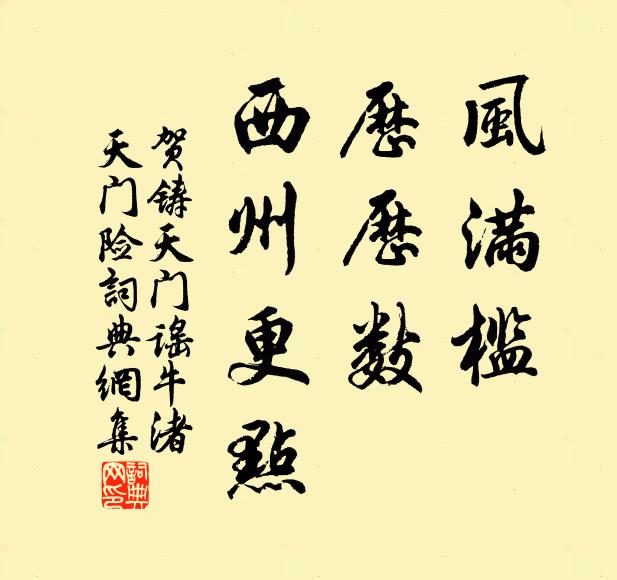 風滿檻
歷歷數
西州更點
贺鑄天门謠牛渚
天门险詞典網集
詞典
网印